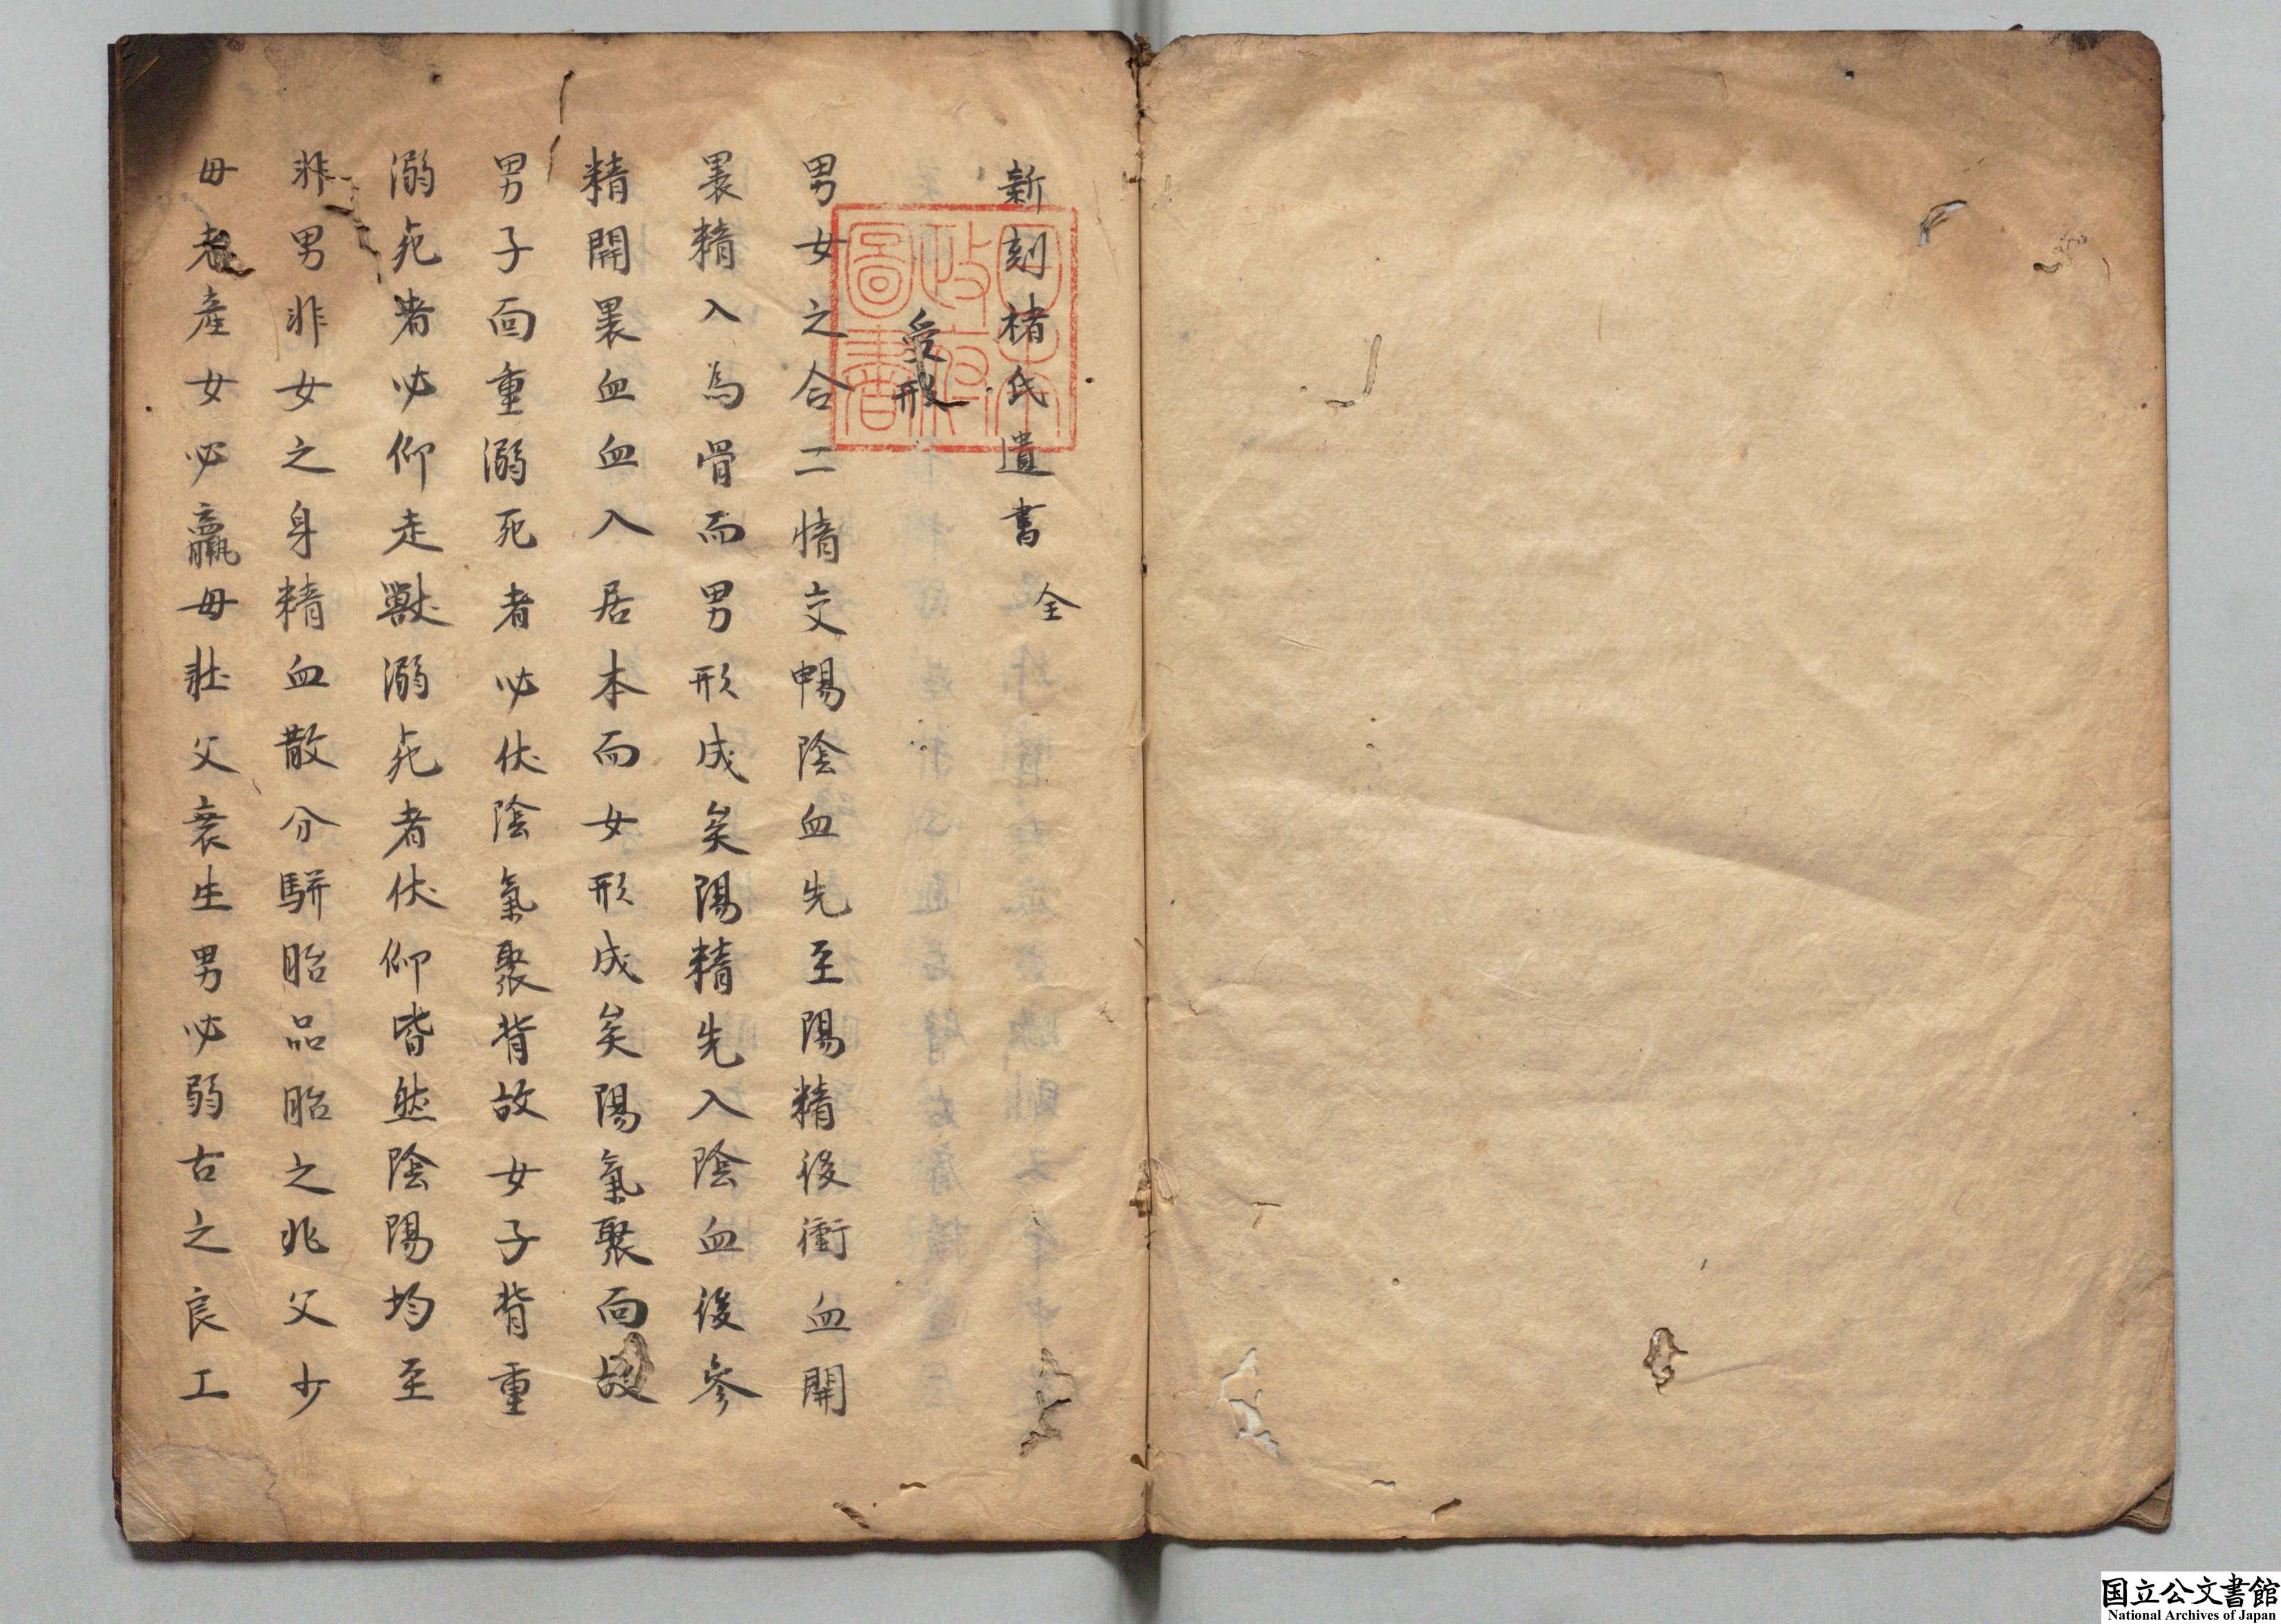 新刻褚氏遺書 全
受形
男女之合二情交暢陰血先至陽精後衝血開
褁精入為骨而男形成矣陽精先入陰血後參
精開褁血血入居本而女形成矣陽氣聚面故
男子面重溺死者必伏陰氣聚背故女子背重
溺死者必仰走獸溺死者伏仰皆然陰陽均至
非男非女之身精血散分駢胎品胎之兆父少
母老產女必羸母壯父衰生男必弱古之良工
日本
政府
圖書
国立公文書館
National Archives of Japan